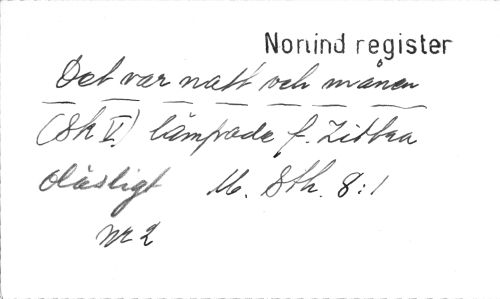 Norlind register
Det var natt och månen
(Sk V.) lämpade f. Zittra
Oläsligt M. Sth. 8:1
Nr 2